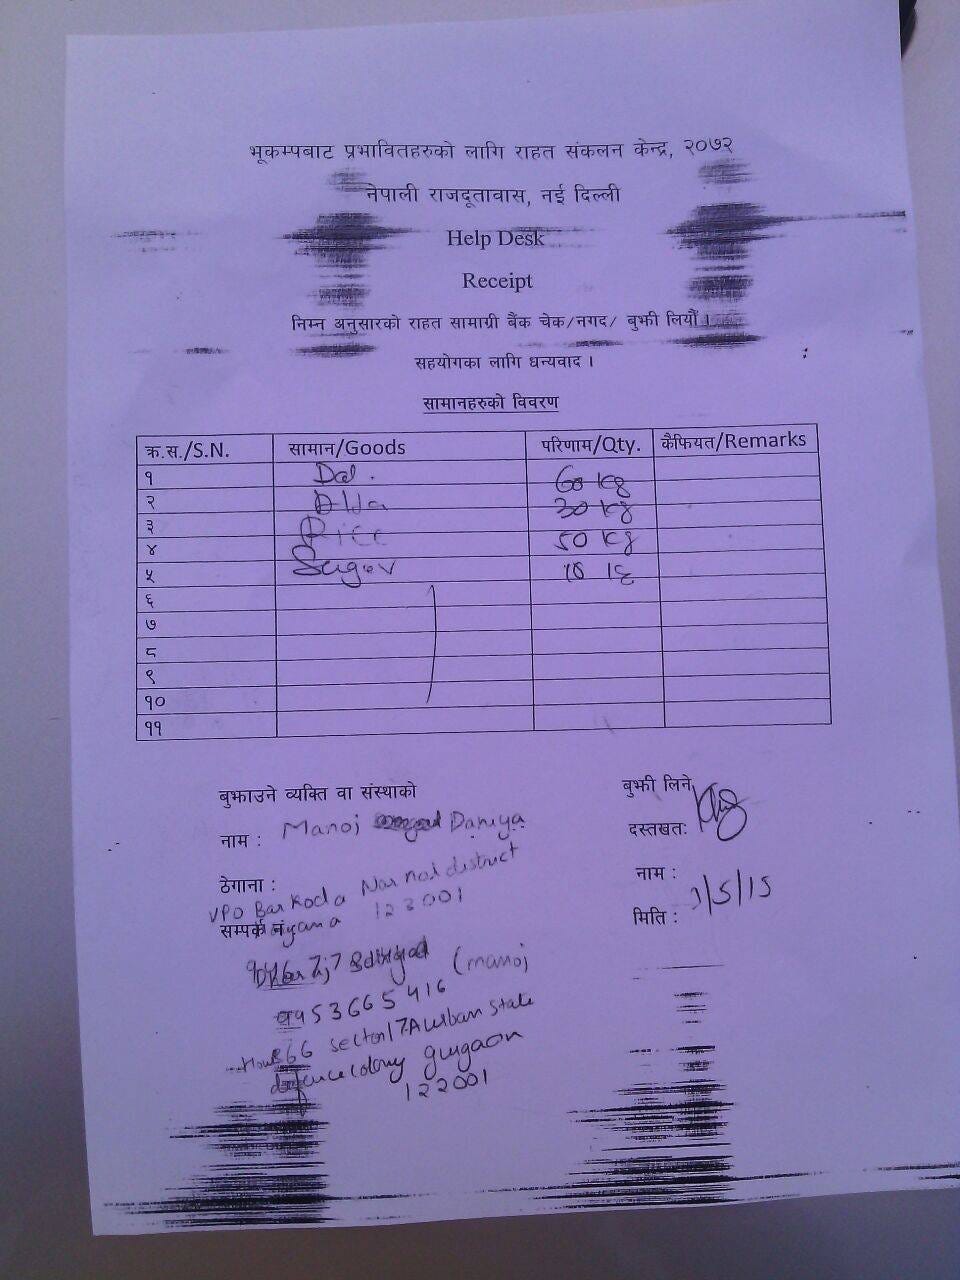 भूकम्पबाट प्रभावितहरुको लागि राहत संकलन केन्द्र, २०७२
नेपाली राजदूतावास, नई दिल्ली
Help Desk
Receipt
निम्न अनुसारको राहत सामाग्री बैंक चेक/नगद/ बुझी लियौं ।
सहयोगका लागि धन्यवाद ।
सामानहरुको विवरण
क्र.स./S.N. सामान/Goods परिणाम/Qty. कैफियत/Remarks
१ Dal. 60 Kg
२ 30 Kg
३ Rice 50 Kg
४ Suger 10 Kg
५
६
७
८
९
१०
११
बुझाउने व्यक्ति वा संस्थाको बुझी लिने
नाम : Manoj Daniya दस्तखतः
ठेगाना : नाम :
VPO Bar Koda Nar nol district
सम्पर्क नं 123001 मिति : 1/5/15
(manoj
9953665416
House 66 sector 17A urban state
defence colony gurgaon
122001